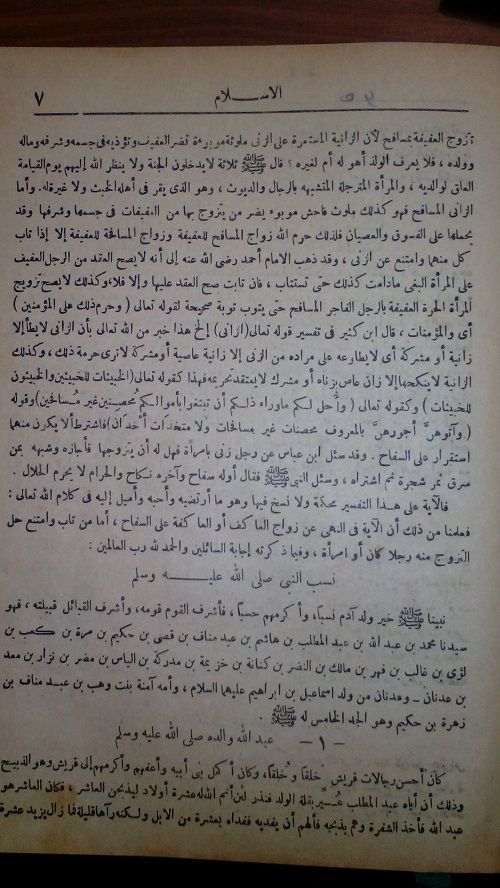 الاســـلام ٧
تزوج العفيفة بمسافح لأن الزانية المستمرة على الزنى ملوثة موبوءة تضر العفيف وتؤذيه في جسمه وشرفه وماله
وولده ، فلا يعرف الولد أهو له أم لغيره ؟ قال ﷺ ثلاثة لا يدخلون الجنة ولا ينظر الله إليهم يوم القيامة
العاق لوالديه ، والمرأة المترجلة المتشبهه بالرجال والديوث ، وهو الذى يقر فى أهله الخبث ولا غيرة له. وأما
الزانى المسافح فهو كذلك ملوث فاحش موبوء يضر من يتزوج بها من العفيفات فى جسمها وشرفها وقد
يحملها على الفسوق والعصيان فلذلك حرم الله زواج المسافح للعفيفة وزواج المسافحة للعفيفة إلا إذا تاب
كل منهما وامتنع عن الزنى ، وقد ذهب الامام أحمد رضى الله عنه إلى أنه لا يصح العقد من الرجل العفيف
على المرأة البغى مادامت كذلك حتى تستتاب ، فان تابت صح العقد عليها وإلا فلا، وكذلك لا يصح تزويج
المرأة الحرة العفيفة بالرجل الفاجر المسافح حتى يتوب توبة صحيحة لقوله تعالى ( وحرم ذلك على المؤمنين )
أى والمؤمنات ، قال ابن كثير فى تفسير قوله تعالى (الزانى) إلخ هذا خبر من الله تعالى بأن الزانى لا يطأ إلا
زانية أو مشركة أى لا يطاوعه على مراده من الزنى إلا زانية عاصية أو مشركة لا ترى حرمة ذلك ، وكذلك
الزانية لا ينكحها إلا زان عاص بزناه أو مشرك لا يعتقد تحريمه فهذا كقوله تعالى (الخبيثات للخبيثين والخبيثون
للخبيثات ) وكقوله تعالى ( وأُحل لـكم ماوراء ذلـكم أن تبتغوا بأموالـكم مُحصِنِين غير مُسافِحين) وقوله
( وآتوهنَّ أجورهنَّ بالمعروف محصنات غير مسافحات ولا متخذات أخدان) فاشترط ألا يكون منهما
استقرار على السفاح . وقد سئل ابن عباس عن رجل زنى بامرأة فهل له أن يتزوجها فأجازه وشبهه بمن
سرق ثمر شجرة ثم اشتراه ، وسئل النبي ﷺ فقال أوله سفاح وآخره نكاح والحرام لا يحرم الحلال .
فالآية على هـذا التفسير محكمة ولا نسخ فيها وهو ما أرتضيه وأحبه وأميل إليه فى كلام الله تعالى :
فعلمنا من ذلك أن الآية فى النهى عن زواج العاكف أو العاكفة على السفاح ، أما من تاب وامتنع حل
التزوج منه رجلا كان أو امرأة ، وفيما ذكرته إجابة السائلين والحمد لله رب العالمين :
نسب النبي صلى الله عليـــه وسلم
نبينا ﷺ خير ولد آدم نسبا، وأكرمهم حسبا ، فأشرف القوم قومه، وأشرف القبائل قبيلته ، فهو
سيدنا محمد بن عبد الله بن عبد المطلب بن هاشم بن عبد مناف بن قصى بن حكيم بن مرة بن كعب بن
لؤى بن غالب بن فهر بن مالك بن النضر بن كنانة بن خزيمة بن مدركة بن الياس بن مضر بن نزار بن معد
بن عدنان – وعدنان من ولد اسماعيل بن ابراهيم عليهما السلام ، وأمه آمنة بنت وهب بن عبـد مناف بن
زهرة بن حكيم وهو الجد الخامس له ﷺ .
– ١ – عبد الله والده صلى الله عليه وسلم
كان أحسن رجالات قريش خَلقا وخُلقا، وكان أكمل بنى أبيه وأعفهم وأكرمهم إلى قريش وهو الذبيح
وذلك أن أباه عبد المطلب عُـيِّر بقلة الولد فنذر لئن أتم الله له عشرة أولاد ليذبحن العاشر ، فكان العاشر هو
عبد الله فأخذ الشفرة وهم بذبحه فألهم أن يفديه ففداه بعشرة من الابل ولكنه رآها قليلة فما زال يزيد عشرة